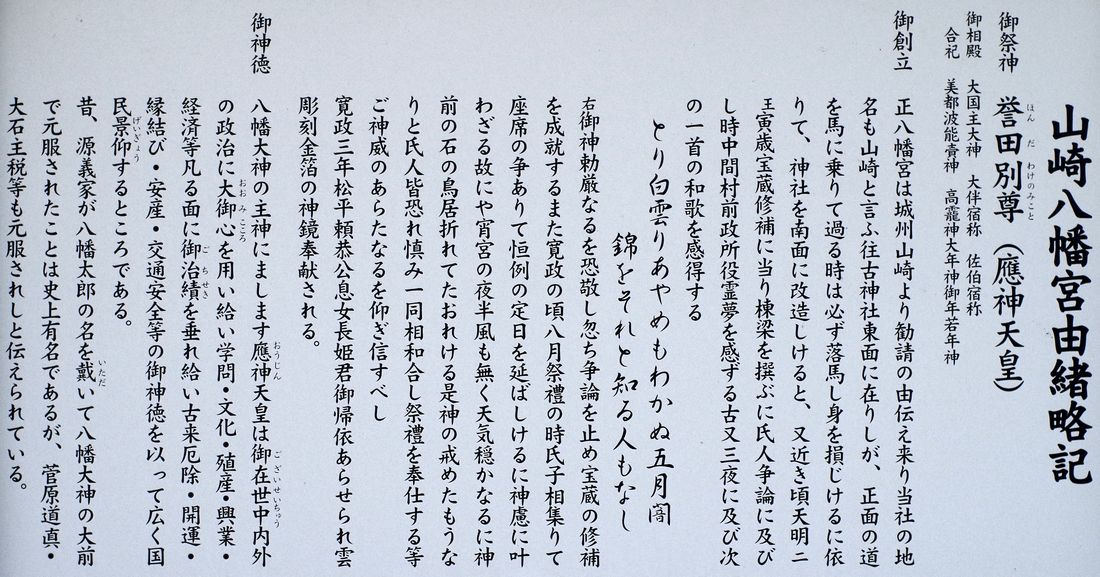 山崎八幡宮由緒略記
御祭神 誉田別尊（應神天皇）
ほんだわけのみこと
御相殿 大国主大神 大伴宿称 佐伯宿称
合祀 美都波能賣神 高龗神大年神御年若年神
御創立 正八幡宮は城州山崎より勧請の由伝え来り当社の地
名も山崎と言ふ往古神社東面に在りしが、正面の道
を馬に乗りて過る時は必ず落馬し身を損じけるに依
りて、神社を南面に改造しけると、又近き頃天明二
壬寅歳宝蔵修補に当り棟梁を撰ぶに氏人争論に及び
し時中間村前政所役霊夢を感ずる古又三夜に及び次
の一首の和歌を感得する
とり白雲りあやめもわかぬ五月闇
錦をそれと知る人もなし
右御神勅厳なるを恐敬し忽ち争論を止め宝蔵の修補
を成就するまた寛政の頃八月祭禮の時氏子相集りて
座席の争ありて恒例の定日を延ばしけるに神慮に叶
わざる故にや宵宮の夜半風も無く天気穏かなるに神
前の石の鳥居折れてたおれける是神の戒めたもうな
りと氏人皆恐れ慎み一同相和合し祭禮を奉仕する等
ご神威のあらたなるを仰ぎ信すべし
寛政三年松平頼恭公息女長姫君御帰依あらせられ雲
彫刻金箔の神鏡奉献される。
御神徳 八幡大神の主神にまします應神天皇は御在世中内外
おうじん ございせいちゅう
の政治に大御心を用い給い学問・文化・殖産・興業・
おおみこころ
経済等凡る面に御治績を垂れ給い古来厄除・開運・
ごちせき
縁結び・安産・交通安全等の御神徳を以って広く国
民景仰するところである。
げいぎょう
昔、源義家が八幡太郎の名を戴いて八幡大神の大前
いただ
で元服されたことは史上有名であるが、菅原道真・
大石主税等も元服されしと伝えられている。